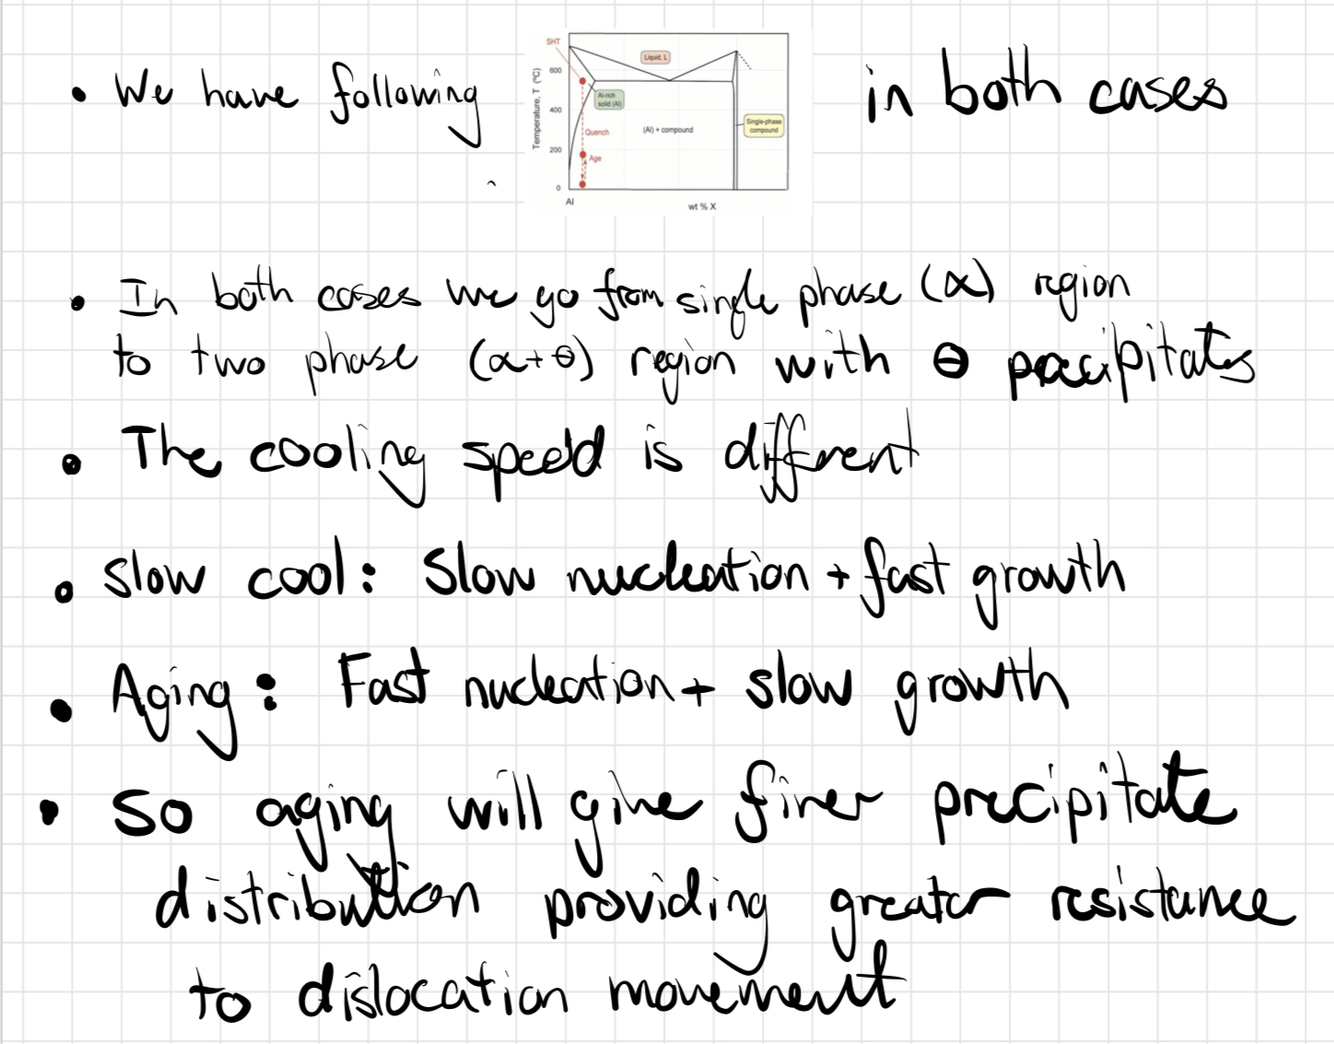 • We have following
SHT
Liquid, L
600
Al-rich
solid (Al)
400
Temperature, T (°C)
Quench
(Al) + compound
Single-phase
compound
200
Age
0
Al
wt % X
in both cases
• In both cases we go from single phase (α) region
to two phase (α+θ) region with θ precipitates
• The cooling speed is different
• Slow cool: Slow nucleation + fast growth
• Aging: Fast nucleation + slow growth
• So aging will give finer precipitate
distribution providing greater resistance
to dislocation movement